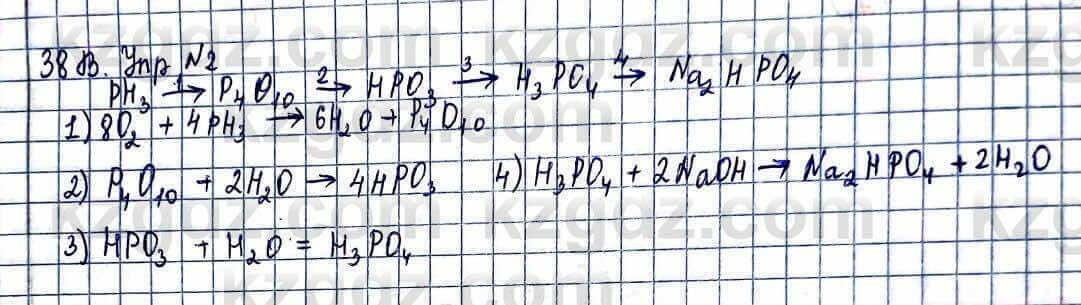 38 В. Упр №2
PH₃ —1→ P₄O₁₀ —2→ HPO₃ —3→ H₃PO₄ —4→ Na₂HPO₄
1) 8O₂ + 4PH₃ → 6H₂O + P₄O₁₀
2) P₄O₁₀ + 2H₂O → 4HPO₃ 4) H₃PO₄ + 2NaOH → Na₂HPO₄ + 2H₂O
3) HPO₃ + H₂O = H₃PO₄
kzgdz.com